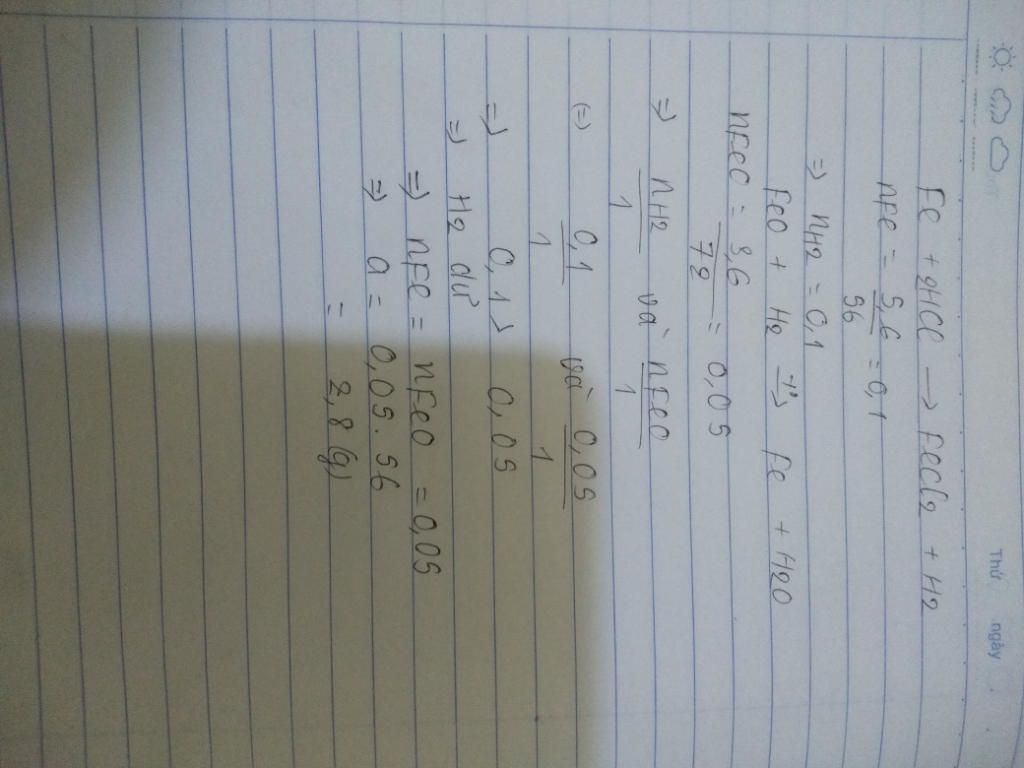 Thứ ngày
Fe + 2HCl → FeCl2 + H2
nFe = 5,6/56 = 0,1
=> nH2 = 0,1
FeO + H2 -t°-> Fe + H2O
nFeO = 3,6/72 = 0,05
=> nH2/1 và nFeO/1
(=) 0,1/1 và 0,05/1
=> 0,1 > 0,05
=> H2 dư
=> nFe = nFeO = 0,05
=> a = 0,05.56
= 2,8 (g)